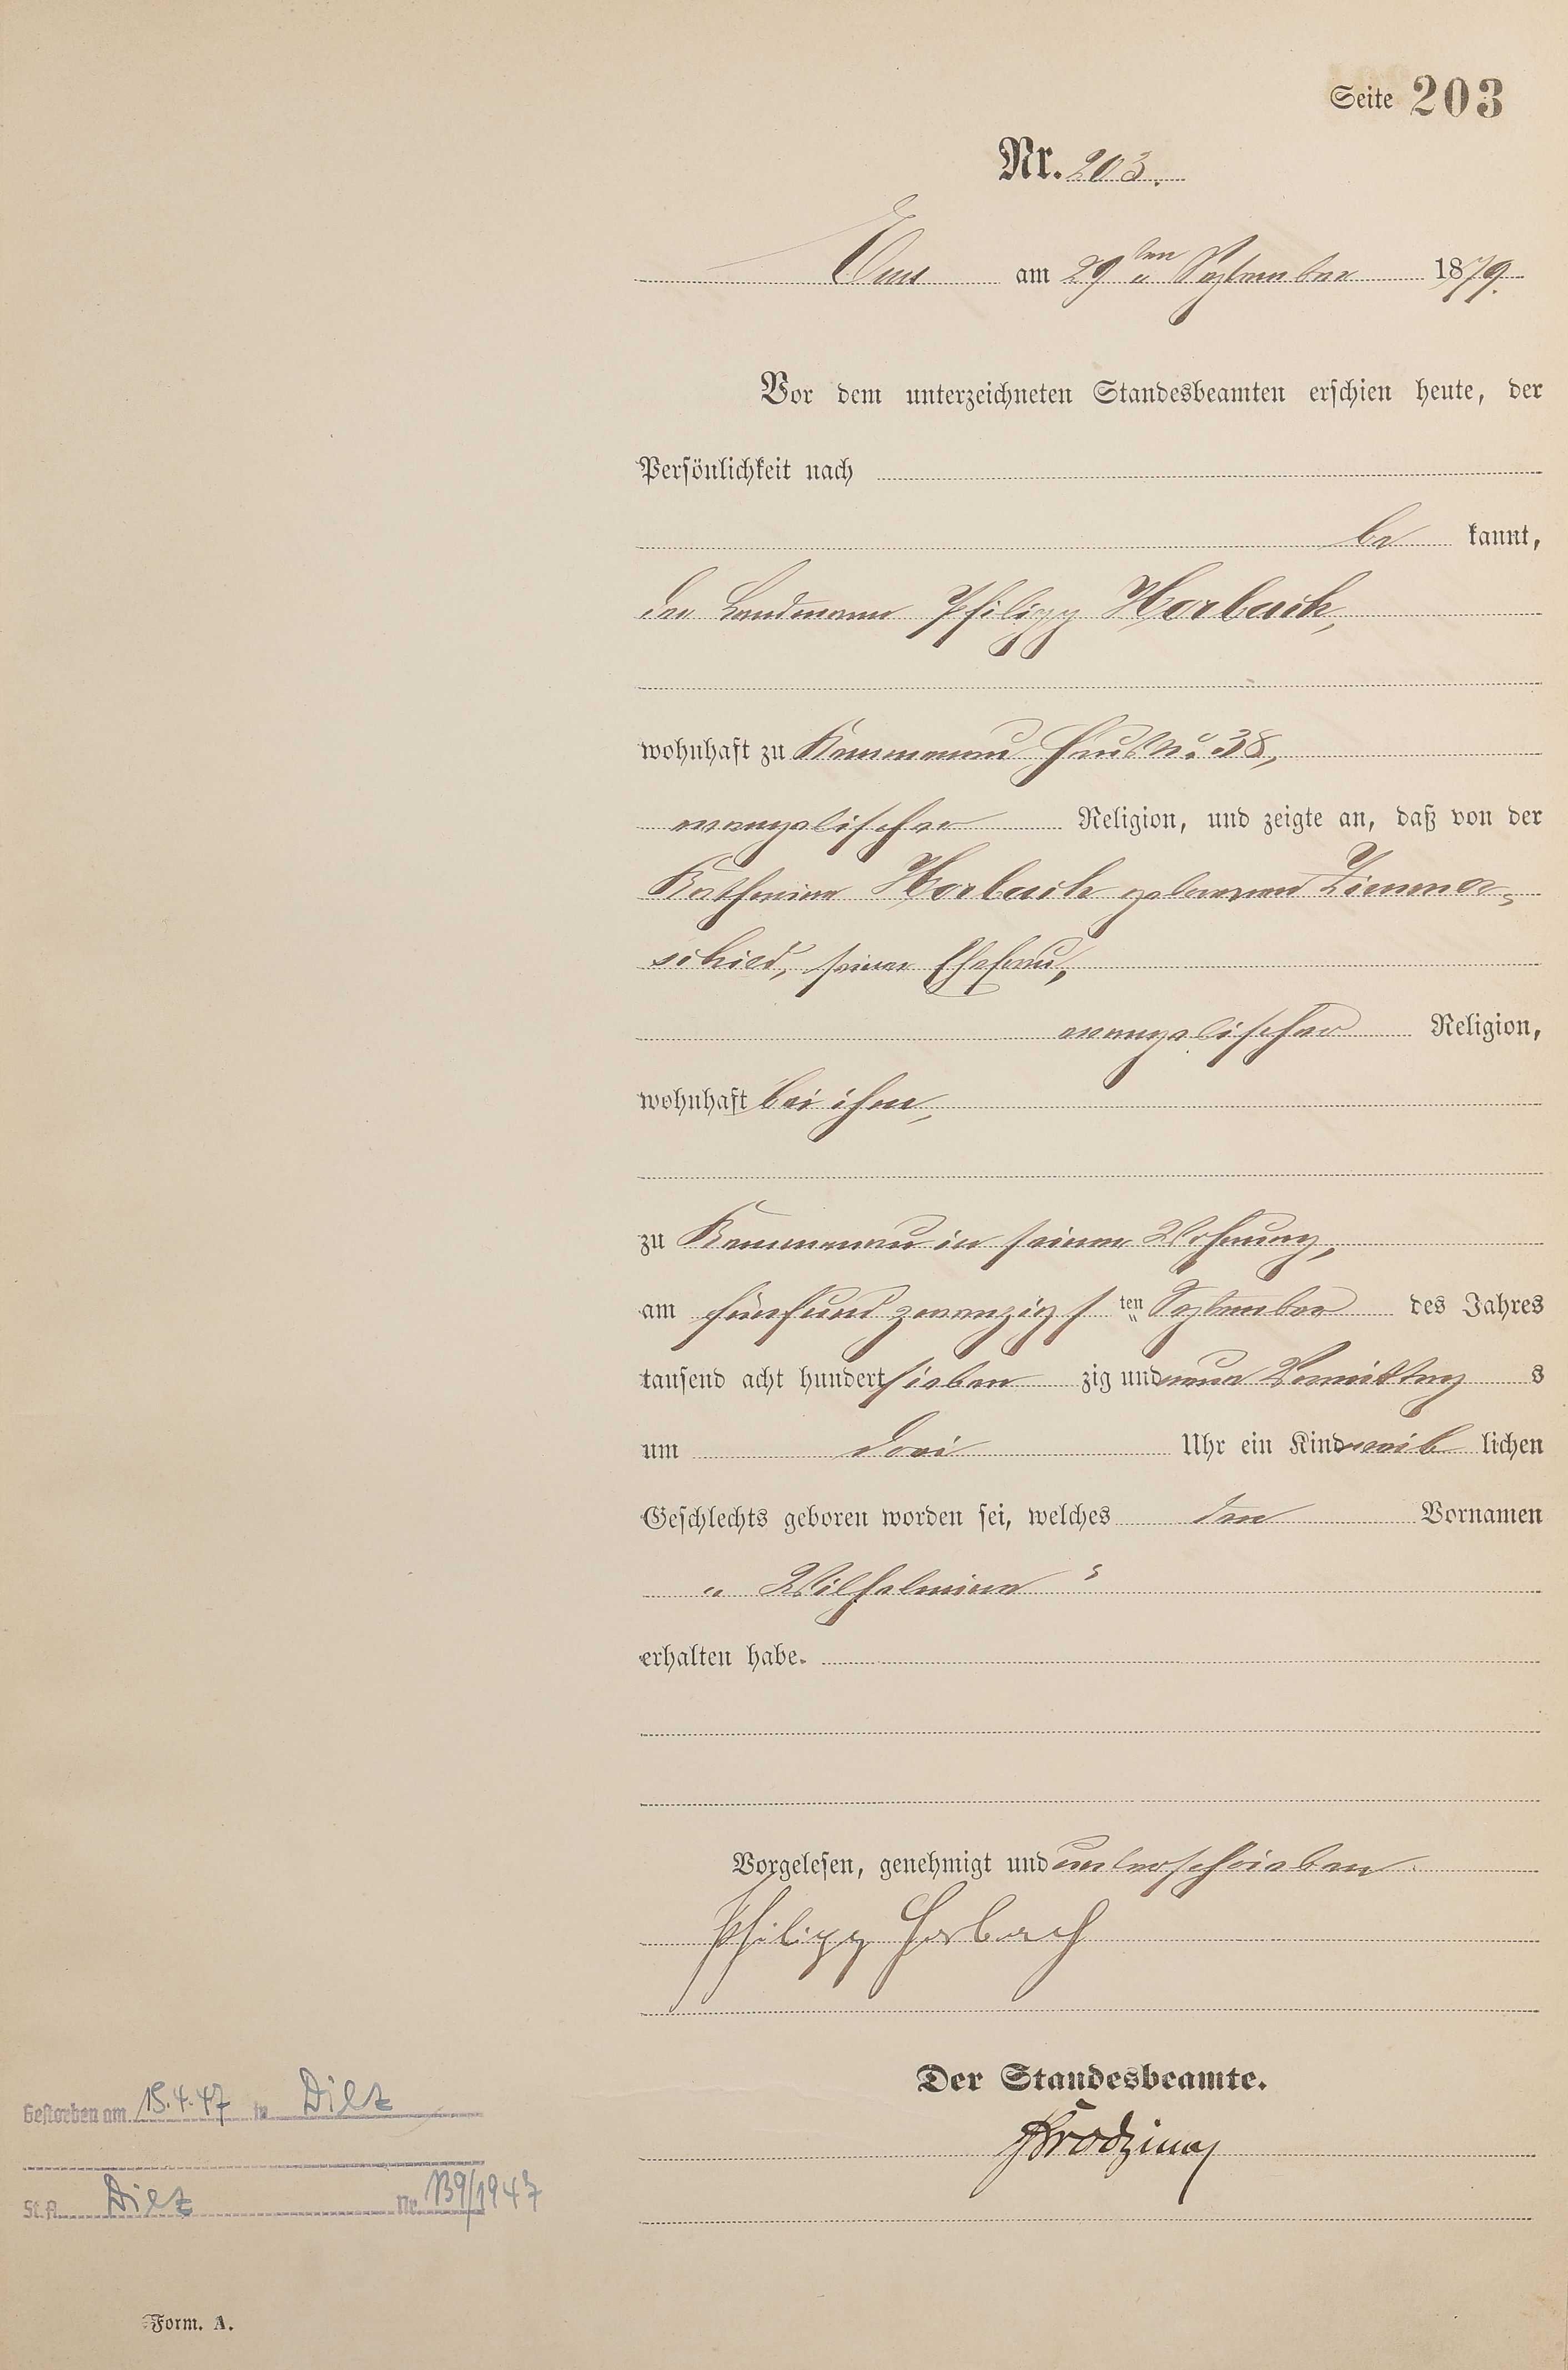 Seite 203
Nr. 203.
Ems am 29ten September 1879.
Vor dem unterzeichneten Standesbeamten erschien heute, der
Persönlichkeit nach
be kannt,
der Landmann Philipp Horbach,
wohnhaft zu Kemmenau Haus No. 38,
evangelischer Religion, und zeigte an, daß von der
Katharina Horbach geborenen Zimmer-
schied, seiner Ehefrau,
evangelischer Religion,
wohnhaft bei ihm,
zu Kemmenau in seiner Wohnung,
am fünfundzwanzigsten September des Jahres
tausend acht hundert sieben zig und neun Vormittag s
um drei Uhr ein Kind weib lichen
Geschlechts geboren worden sei, welches den Vornamen
„Wilhelmine“
erhalten habe.
Vorgelesen, genehmigt und unterschrieben.
Philipp Horbach
Der Standesbeamte.
Gestorben am 15.4.47 in Diez
St.A. Diez Nr. 139/1947
Form. A.